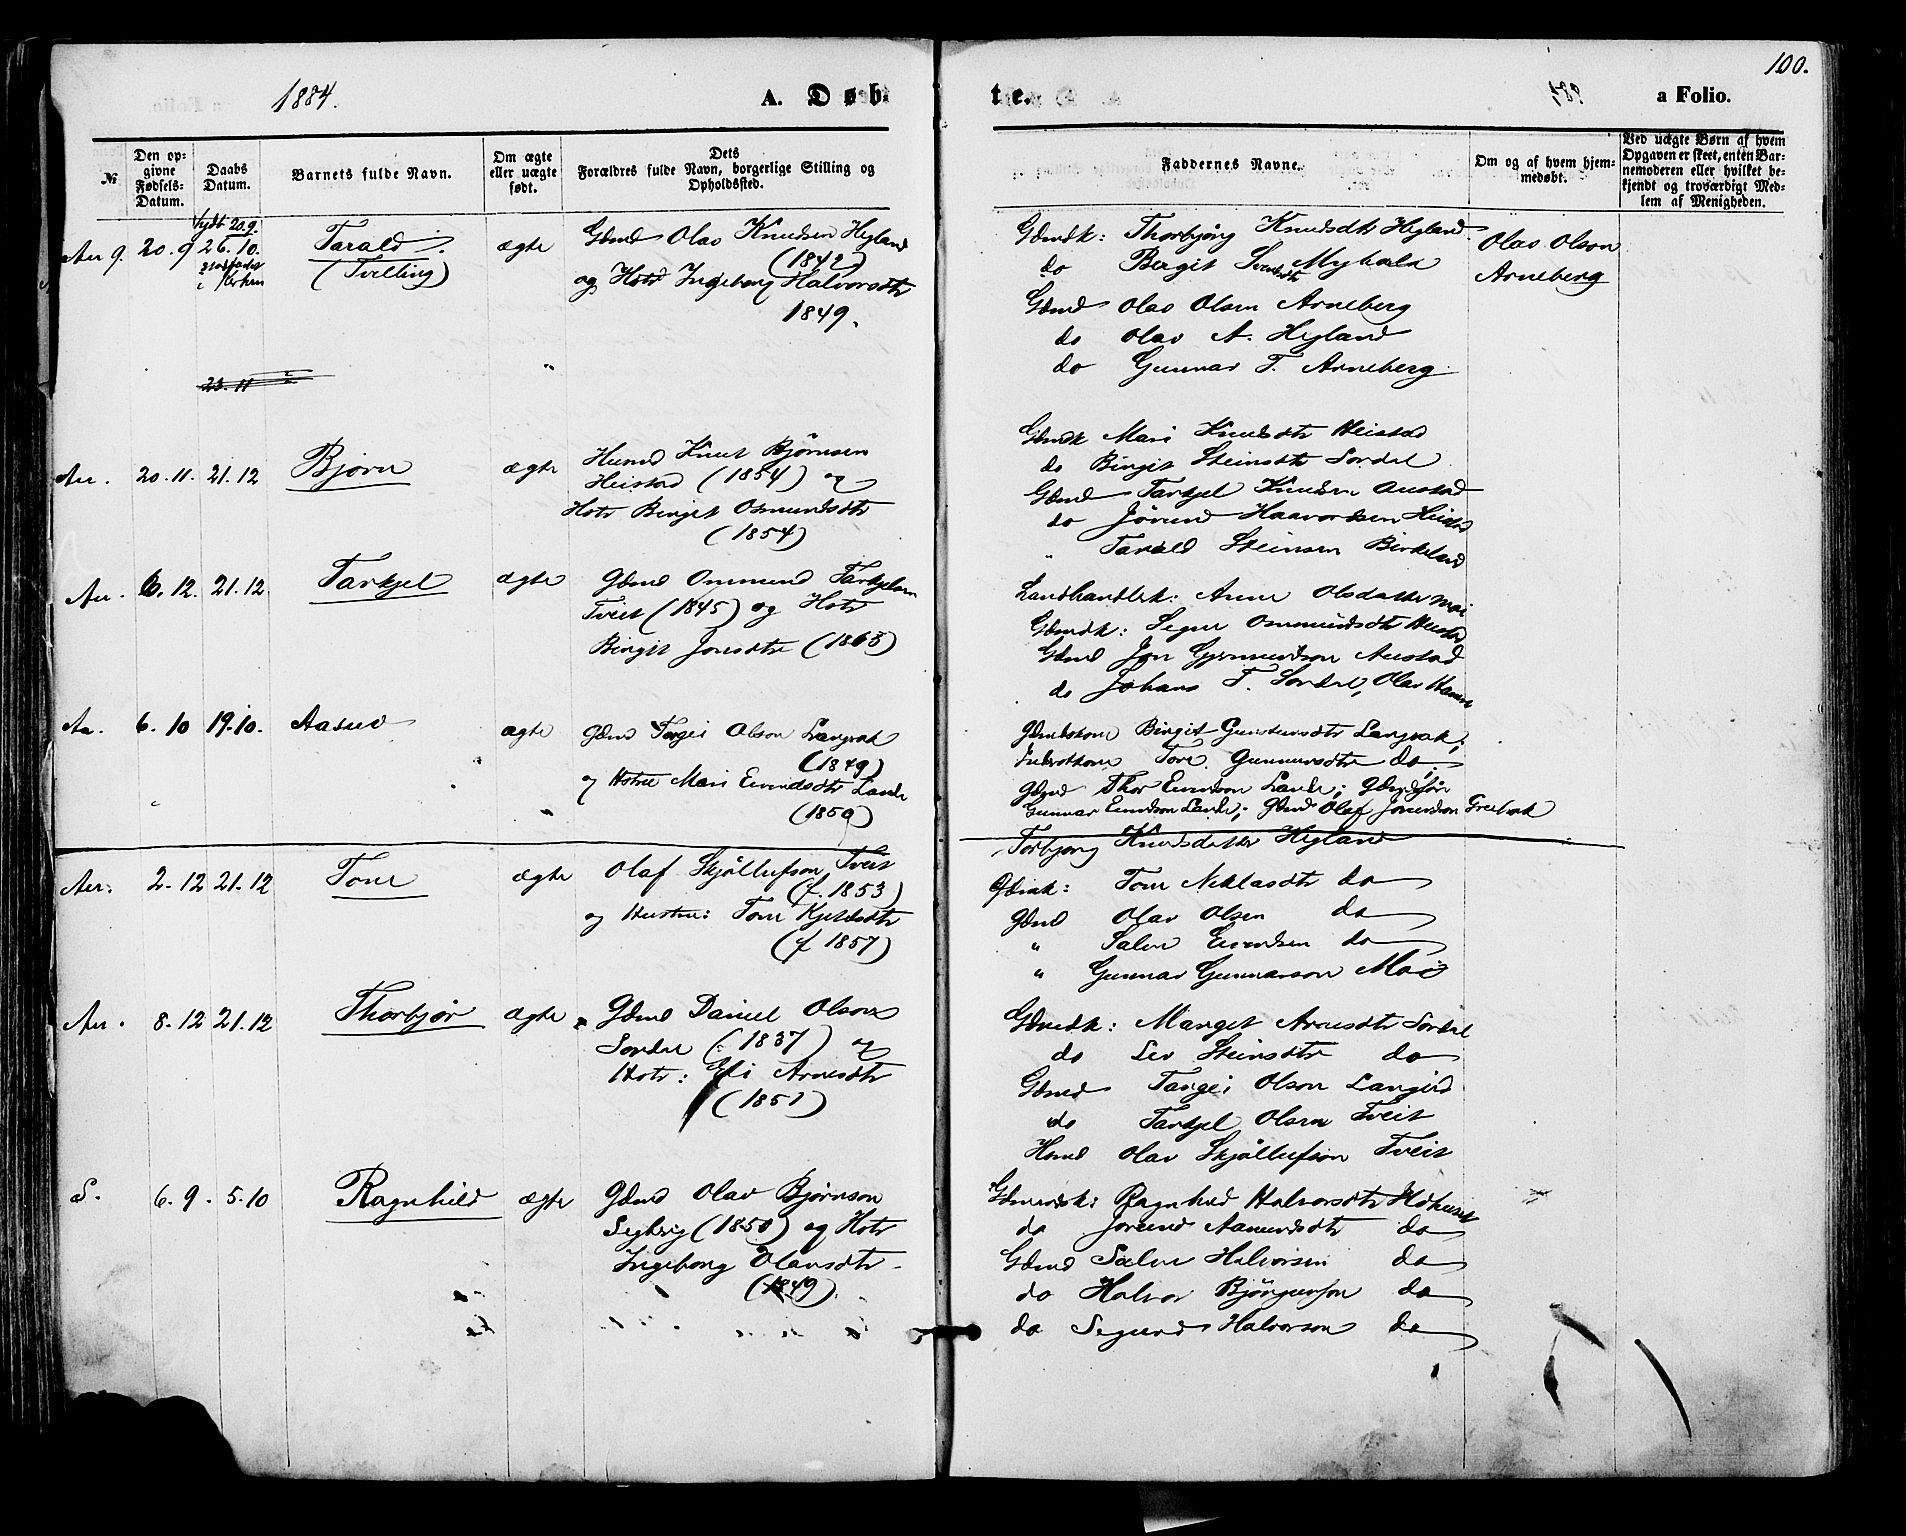 1884.
A. Døb-
te.
a Folio.
100.
№
Den op-
givne
Fødsels-
Datum.
Daabs
Datum.
Barnets fulde Navn.
Om ægte
eller uægte
født.
Dets
Forældres fulde Navn, borgerlige Stilling og
Opholdssted.
Faddernes Navne.
Om og af hvem hjem-
medøbt.
Ved uægte Børn af hvem
Opgaven er skeet, enten Bar-
nemoderen eller hvilket be-
kjendt og troværdigt Med-
lem af Menigheden.
20.9
20. 9
26. 10.
i Kirken
Tarald
(Tvilling)
ægte
Gdmd Olav Knudsen Hegland
(1842)
og Hstr Ingeborg Halvorsdtr
1849.
23. 11
Gdmdk: Thorbjørg Knudsdtr Hegland
do Bergit
Gdmd Olav Olsen Arneberg
do Olav A. Hegland
do Gunnar T. Arneberg
Olav Olson
Arneberg
Au. 20. 11. 21. 12
Bjørn
ægte
Husmd Knut Bjørnsen
Heistad (1854) og
Hstr Birgit Osmundsdtr
(1854)
Gdmdk Mari Knudsdtr Heistad
do Birgit Steinsdtr Sordal
Gdmd Tarkjel Knudsen Austad
do Jørund Haavordsen Heistad
" Tarald Steinsen Birkeland
Au. 6. 12. 21. 12
Tarkjel
ægte
Gdmd Ommund Tarkjelsen
Tveit (1845) og Hstr
Birgit Jonsdtr (1863)
Landhandlerk: Anne Olsdatter Moi
Gdmdk: Segne Ommundsdtr
Gdmd Jon Austad
do Johans T. Sordal, Olav
Aa. 6. 10 19. 10.
Aasuv
ægte
Gdmd Torgei Olson Langrak
(1849)
og Hstru Mari Evindsdtr Lande
(1850)
Gdmdskone Birgit Gunstensdtr Langrak;
Tore Gunnursdtr do;
Gdmd Thor Evindson Lande;
Gunnar Evindson Lande; Gdmd Olaf
Torbjørg Knudsdatter Hegland
Au. 2. 12 21. 12
Tone
ægte
Olaf Skjøllufson Tveit
(f. 1853)
og Hustru: Tone Kjetilsdtr
(f 1857)
Tone Niklasdtr do
Gdmd Olav Olsen do
" Salve Evindsen do
" Gunnar Gunnarson Moi
Au. 8. 12 21. 12
Thorbjør
ægte
Gdmd Daniel Olson
Sordal (1837) og
Hstr: Arnesdtr
(1851)
Gdmdk: Margit Arnesdtr Sordal
do Liv Steinsdtr do
Gdmd Targei Olson
do Tarkjel Olsen Tveit
Hsmd Olav Skjøllufson Tveit
S. 6. 9. 5. 10
Ragnhild
ægte
Gdmd Olav Bjørnson
(1850) og Hstr
Ingeborg Olavsdtr
(1849)
Ragnhild Halvorsdtr
do Jorund Aamundsdtr do
Gdmd Salve Halvorsen do
do Halvor Bjørgunson do
do Segurd Halvorson do